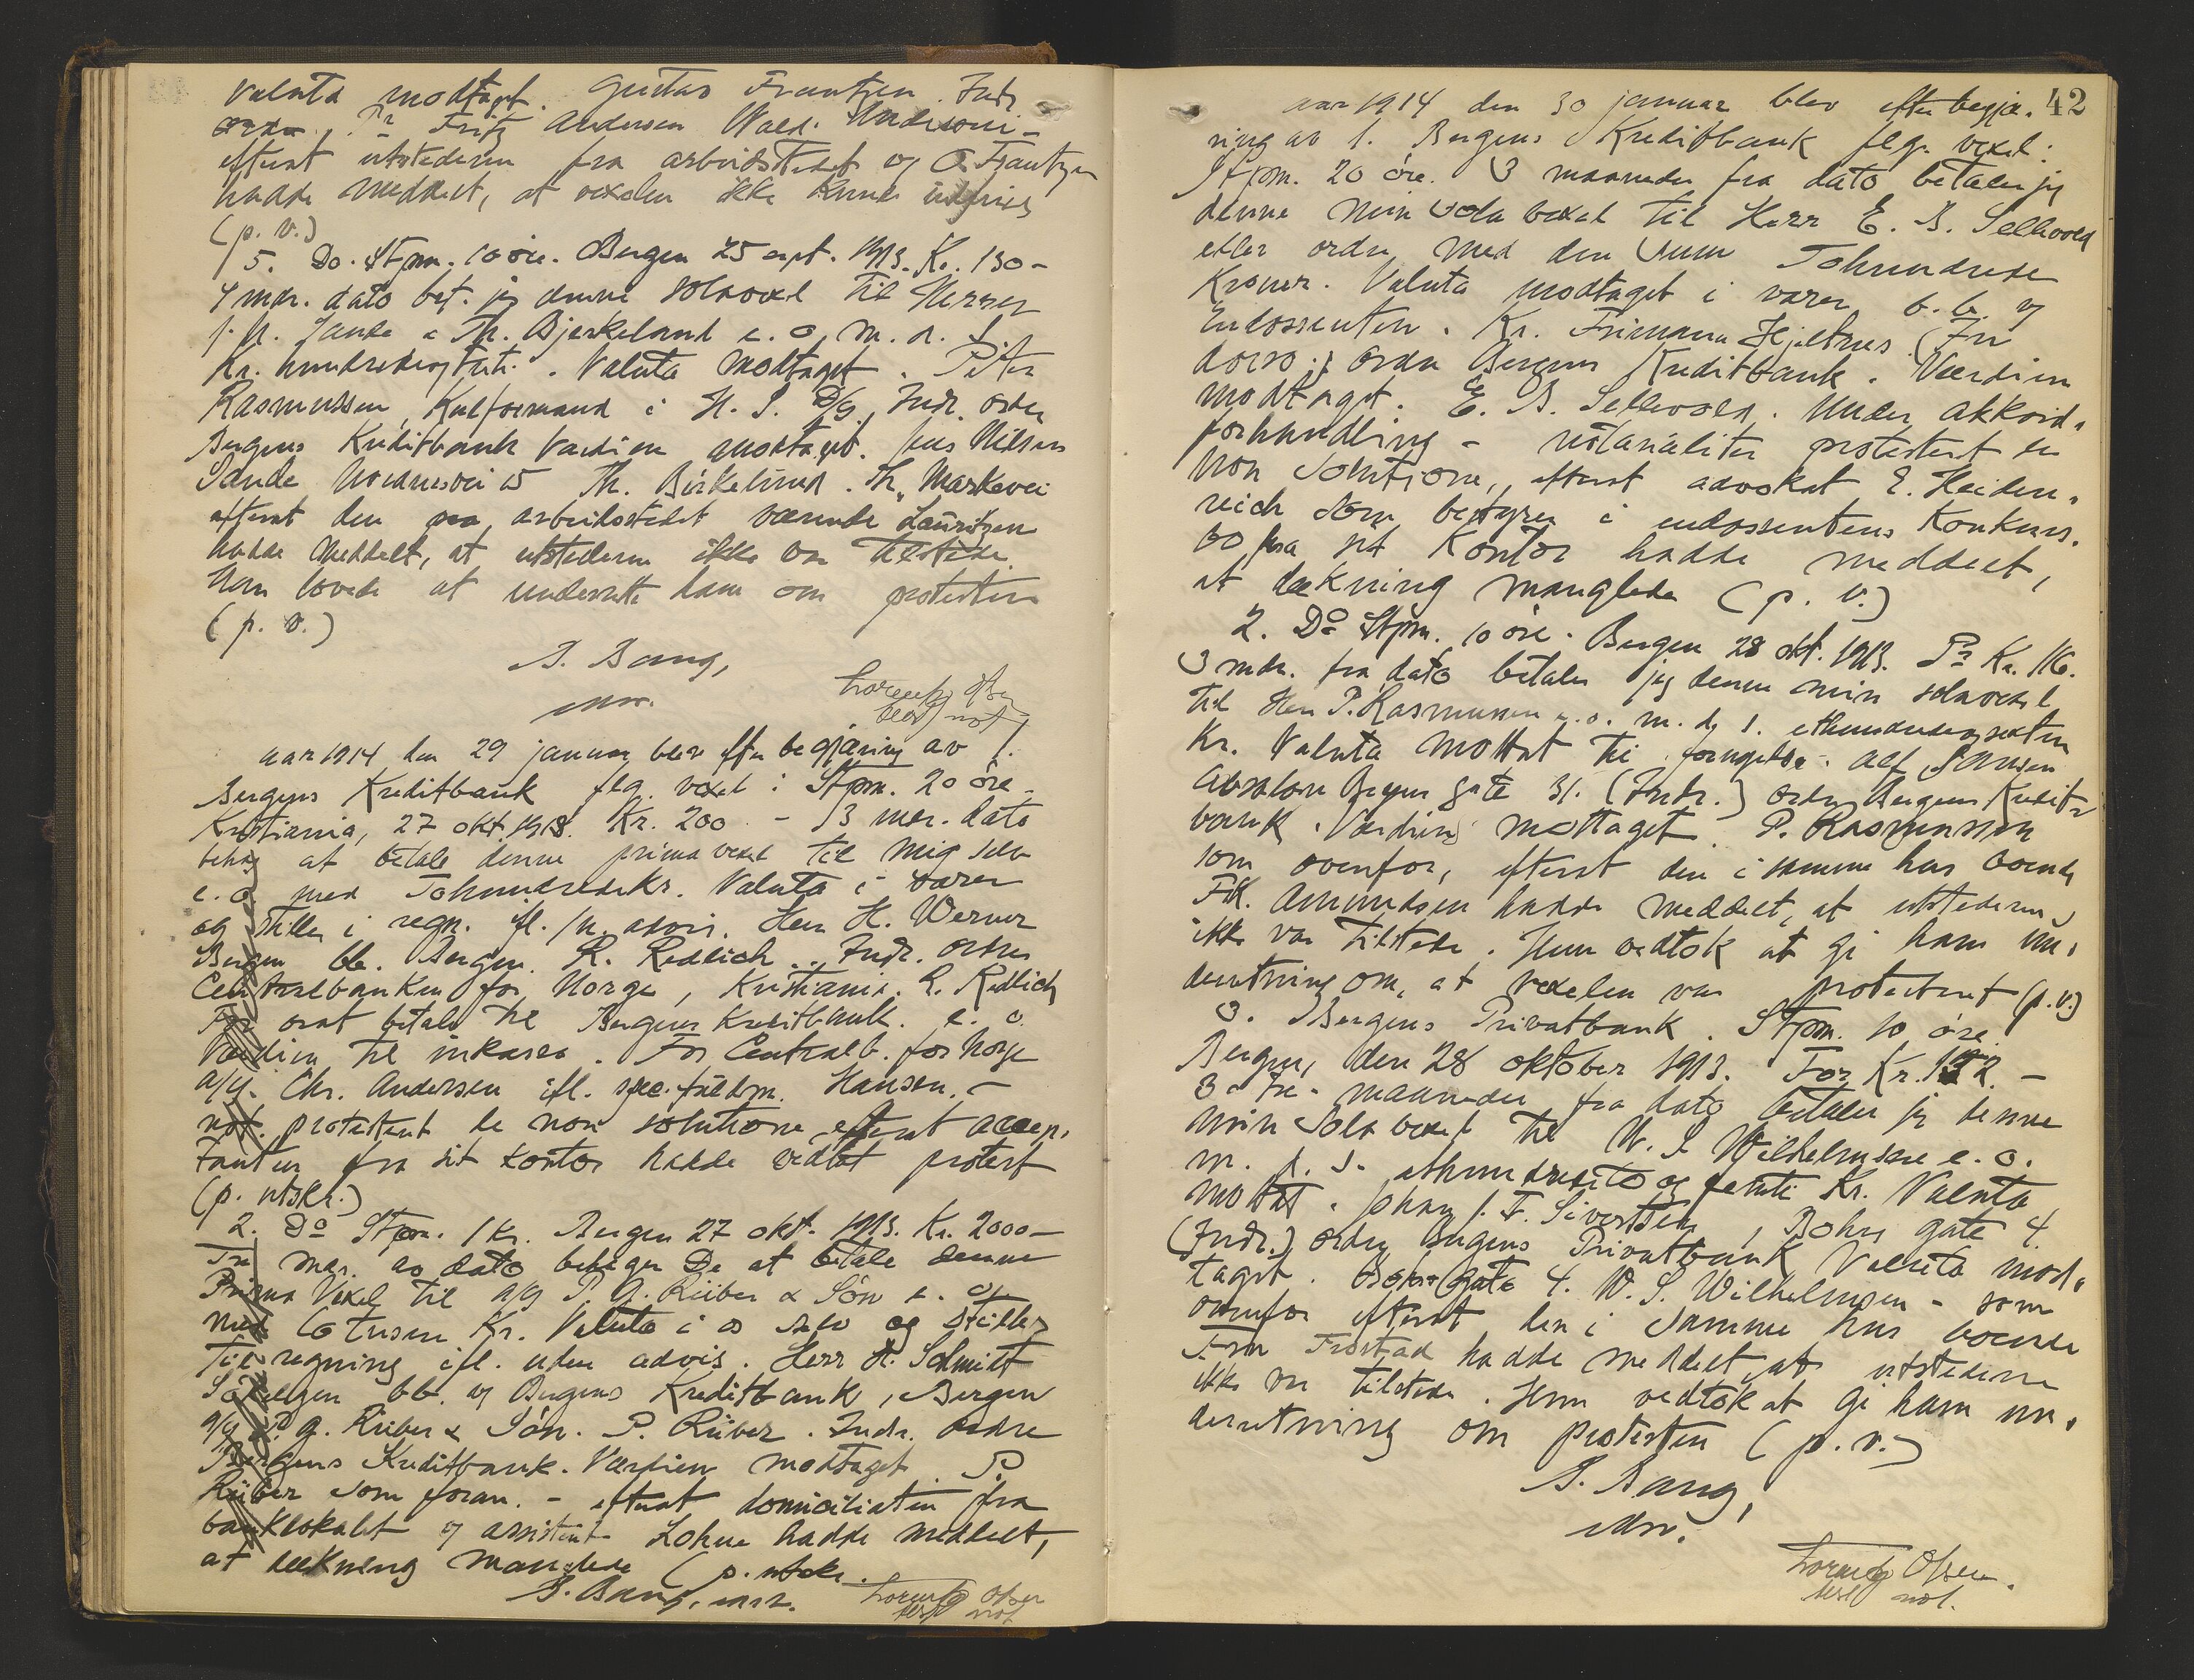 Valuta modtaget. Gustav Frantzen. Indr
ordre, Pr Fritz Andersen Wald. Anderson -
efterat utstederen fra arbeidsstedet og O. Frantzen
hadde meddelt, at vexelen ikke kunde indfries
(p. v.)
5. Do. Stpm. 10 øre. Bergen 25 sept. 1913. Kr. 130 -
4 mdr. dato bet. jeg denne solavexel til Herrer
J. N. Sande & Th. Bjerkeland e. o. m. d. S.
Kr. hundredeogtreti. Valuta modtaget. Peter
Rasmussen, Kulformand i H. J. D/S, Indr. ordre
Bergens Kreditbank Værdien modtaget. Jens Nilsen
Sande 15 Th. Birkelund. Th. Markevei
efterat den paa arbeidsstedet værende Lauritzen
hadde meddelt, at utstederen ikke var tilstede.
Han lovede at underrette ham om protesten
(p. v.)
B. Bang,
mr.
Lorentz Olsen
test not
Aar 1914 den 29 januar blev efter begjæring av 1.
Bergens Kreditbank flg. vexel: Stpm. 20 øre.
Kristiania, 27 okt. 1913. Kr. 200. - 3 mdr. dato
behag at betale denne prima vexel til mig selv
e. o. med Tohundredekr. Valuta i varer
og stilles i regn. ifl. advis. Herr H. Werner
Bergen bb. Bergen. R. Redlich. Indr. ordre
Centralbanken for Norge, Kristiania. R. Redlich
For osst betale til Bergens Kreditbank. e. o.
Værdien til inkasso. For Centralb. for Norge
A/S. Chr. Andersen ifl. spec. fuldm. Hansen. -
not. protestert de non solutione efterat accep-
tanten fra sit kontor hadde vedtat protest
(p. utskr.)
2. Do Stpm. 1 kr. Bergen 27 okt. 1913. Kr. 2000 -
Tre mdr. av dato behager De at betale denne
Prima Vexel til A/S P. G. Rieber & Søn e. o.
med totusen Kr. Valuta i os selv og stilles
til regning ifl. uden advis. Herr H. Schmidt
bb. og Bergens Kreditbank, Bergen
A/S P. G. Rieber & Søn. P. Rieber. Indr. ordre
Bergens Kreditbank. Værdien modtaget P.
Rieber som foran. - efterat domiciliaten fra
banklokalet og assistent Lohne hadde meddelt,
at dækning manglede (p. utskr.
B. Bang, mr. Lorentz Olsen
test not
42
Aar 1914 den 30 januar blev efter begjæ-
ring av 1. Bergens Kreditbank flg. vexel:
Stpm. 20 øre. 3 maaneder fra dato betaler jeg
denne min Sola vexel til Herr E. B. Sellevold
eller ordre med den Sum Tohundrede
Kroner. Valuta modtaget i varer b. b. og
Endossenten. Kr. Frimann Hjeltnes (In
dorso:) ordre Bergens Kreditbank. Værdien
modtaget. E. B. Sellevold. Under akkord-
forhandling - notarialiter protestert de
non Solutione, efterat advokat E. Heiden-
reich som bestyrer i endossentens Konkurs-
bo fra sit Kontor hadde meddelt,
at dækning manglede (p. v.)
2. Do Stpm. 10 øre. Bergen 28 okt. 1913. Pr Kr. 116.
3 mdr. fra dato betaler jeg denne min solavexel
til Herr P. Rasmussen e. o. m. d. S. ethundredeogseksten
Kr. Valuta mottat til fornøielse. Alf Jansen
Absalon Beyers gate 31. (Indr.) ordre Bergens Kredit-
bank. Værdien mottaget. P. Rasmussen
som ovenfor, efterat den i samme hus boende
Frk. Amundsen hadde meddelt, at utstederen
ikke var tilstede. Hun vedtok at gi ham un-
derretning om, at vexelen var protestert (p. v.)
3. Bergens Privatbank. Stpm. 10 øre.
Bergen, den 28 oktober 1913. For Kr. 152. -
3 - tre - maaneder fra dato betaler jeg denne
min Sola vexel til W. S. Wilhelmsen e. o.
m. d. S. ethundredeto og femti Kr. Valuta
mottat. Johan J. F. Sivertsen, Bohrs gate 4.
(Indr.) ordre Bergens Privatbank Valuta mod-
taget. Bohrs gate 4. W. S. Wilhelmsen - som
ovenfor efterat den i samme hus boende
Fru Frostad hadde meddelt, at utstederen
ikke var tilstede. Hun vedtok at gi ham un-
derretning om protesten (p. v.)
B. Bang,
mr.
Lorentz Olsen.
test not.